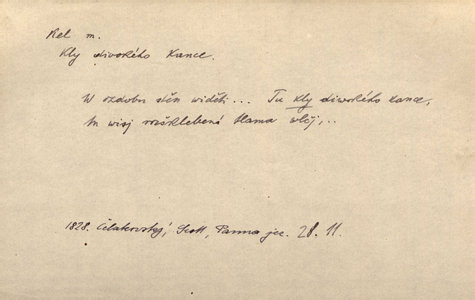 Kel m.
kly divokého kance.
W ozdobu stěn widěti... Tu kly diwokého kance,
tu wisj rozšklebená tlama wlčj,..
1828. Čelakovský, Scott, Panna jez. 28. 11.